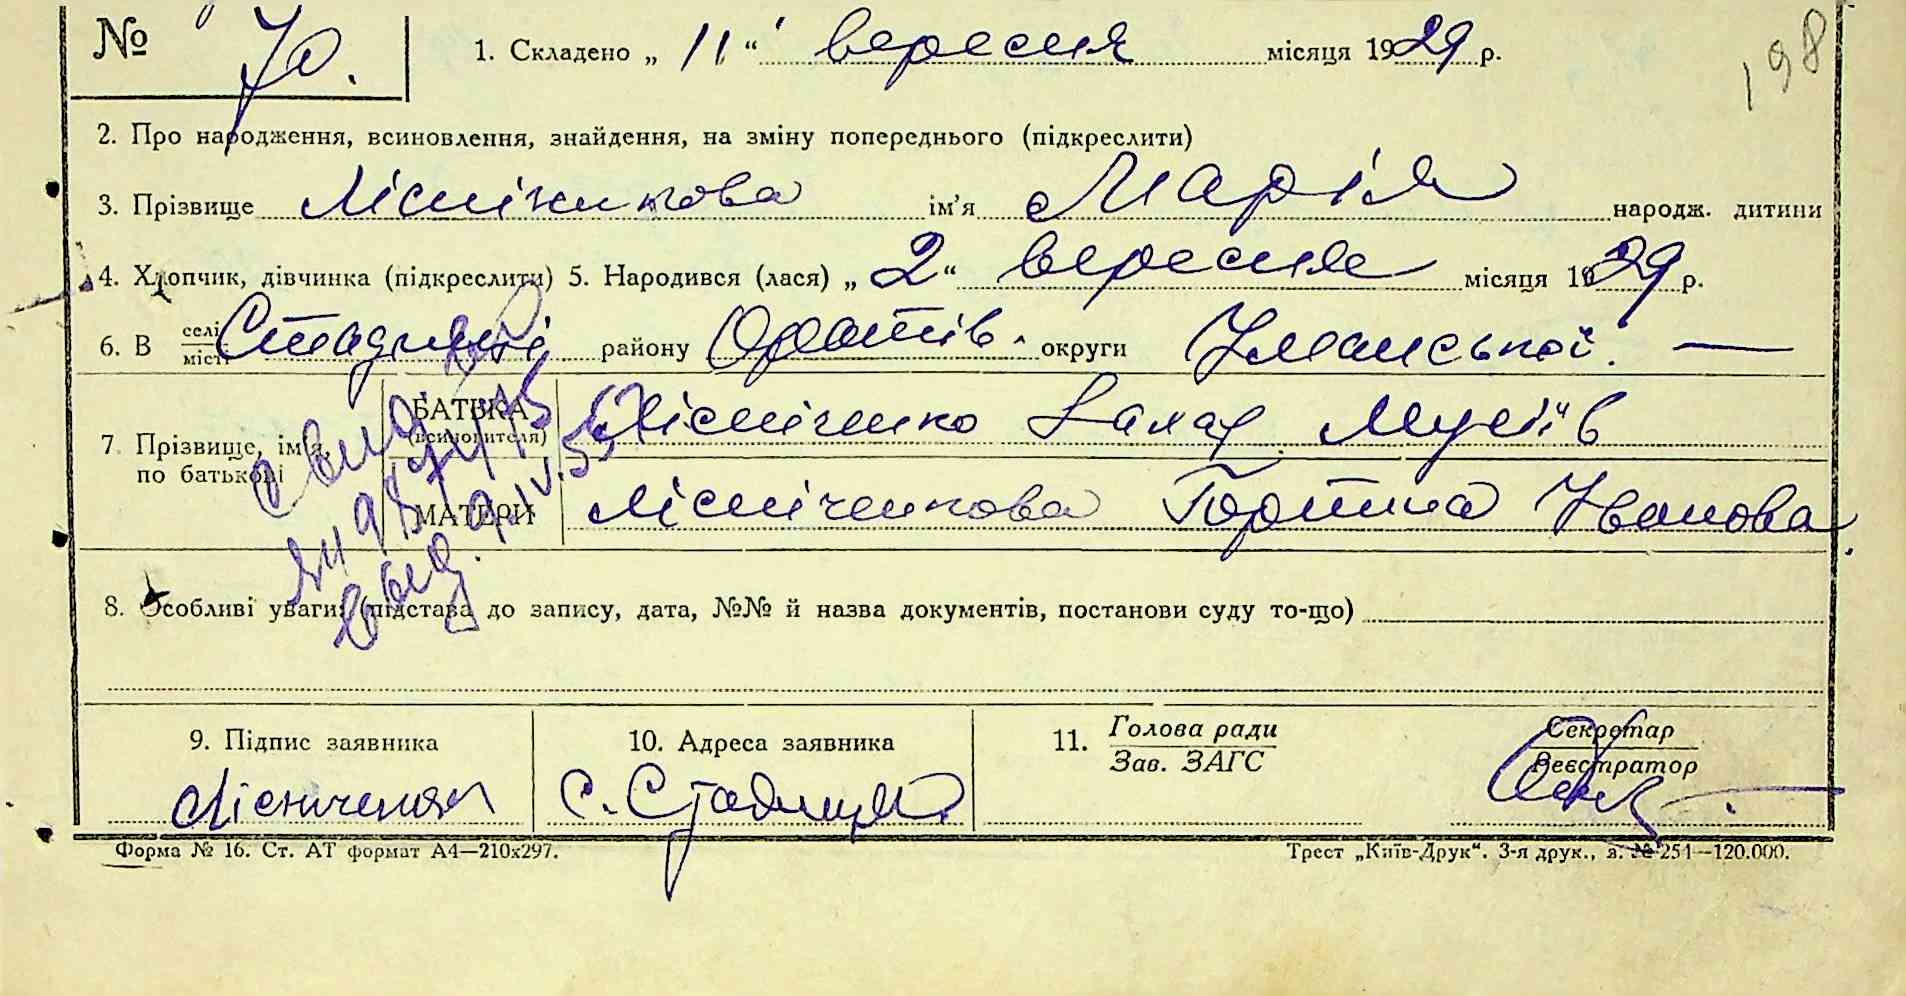 198
№ 70. 1. Складено „11“ вересня місяця 1929 р.
2. Про народження, всиновлення, знайдення, на зміну попереднього (підкреслити)
3. Прізвище Лісніченкова ім’я Марія народж. дитини
4. Хлопчик, дівчинка (підкреслити) 5. Народився (лася) „2“ вересня місяця 1929 р.
6. В селі місті Стадниці району Оратів. округи Уманської. —
7. Прізвище, ім’я, по батькові
БАТЬКА (всиновителя) Лісніченко Захар Мусіїв
МАТЕРИ Лісніченкова Горпина Іванова
8. Особливі уваги: (підстава до запису, дата, №№ й назва документів, постанови суду то-що)
9. Підпис заявника 10. Адреса заявника 11. Голова ради Секретар
Зав. ЗАГС Реєстратор
с. Стадниця
Форма № 16. Ст. АТ формат А4—210х297. Трест „Київ-Друк“. 3-я друк., з. № 251—120.000.